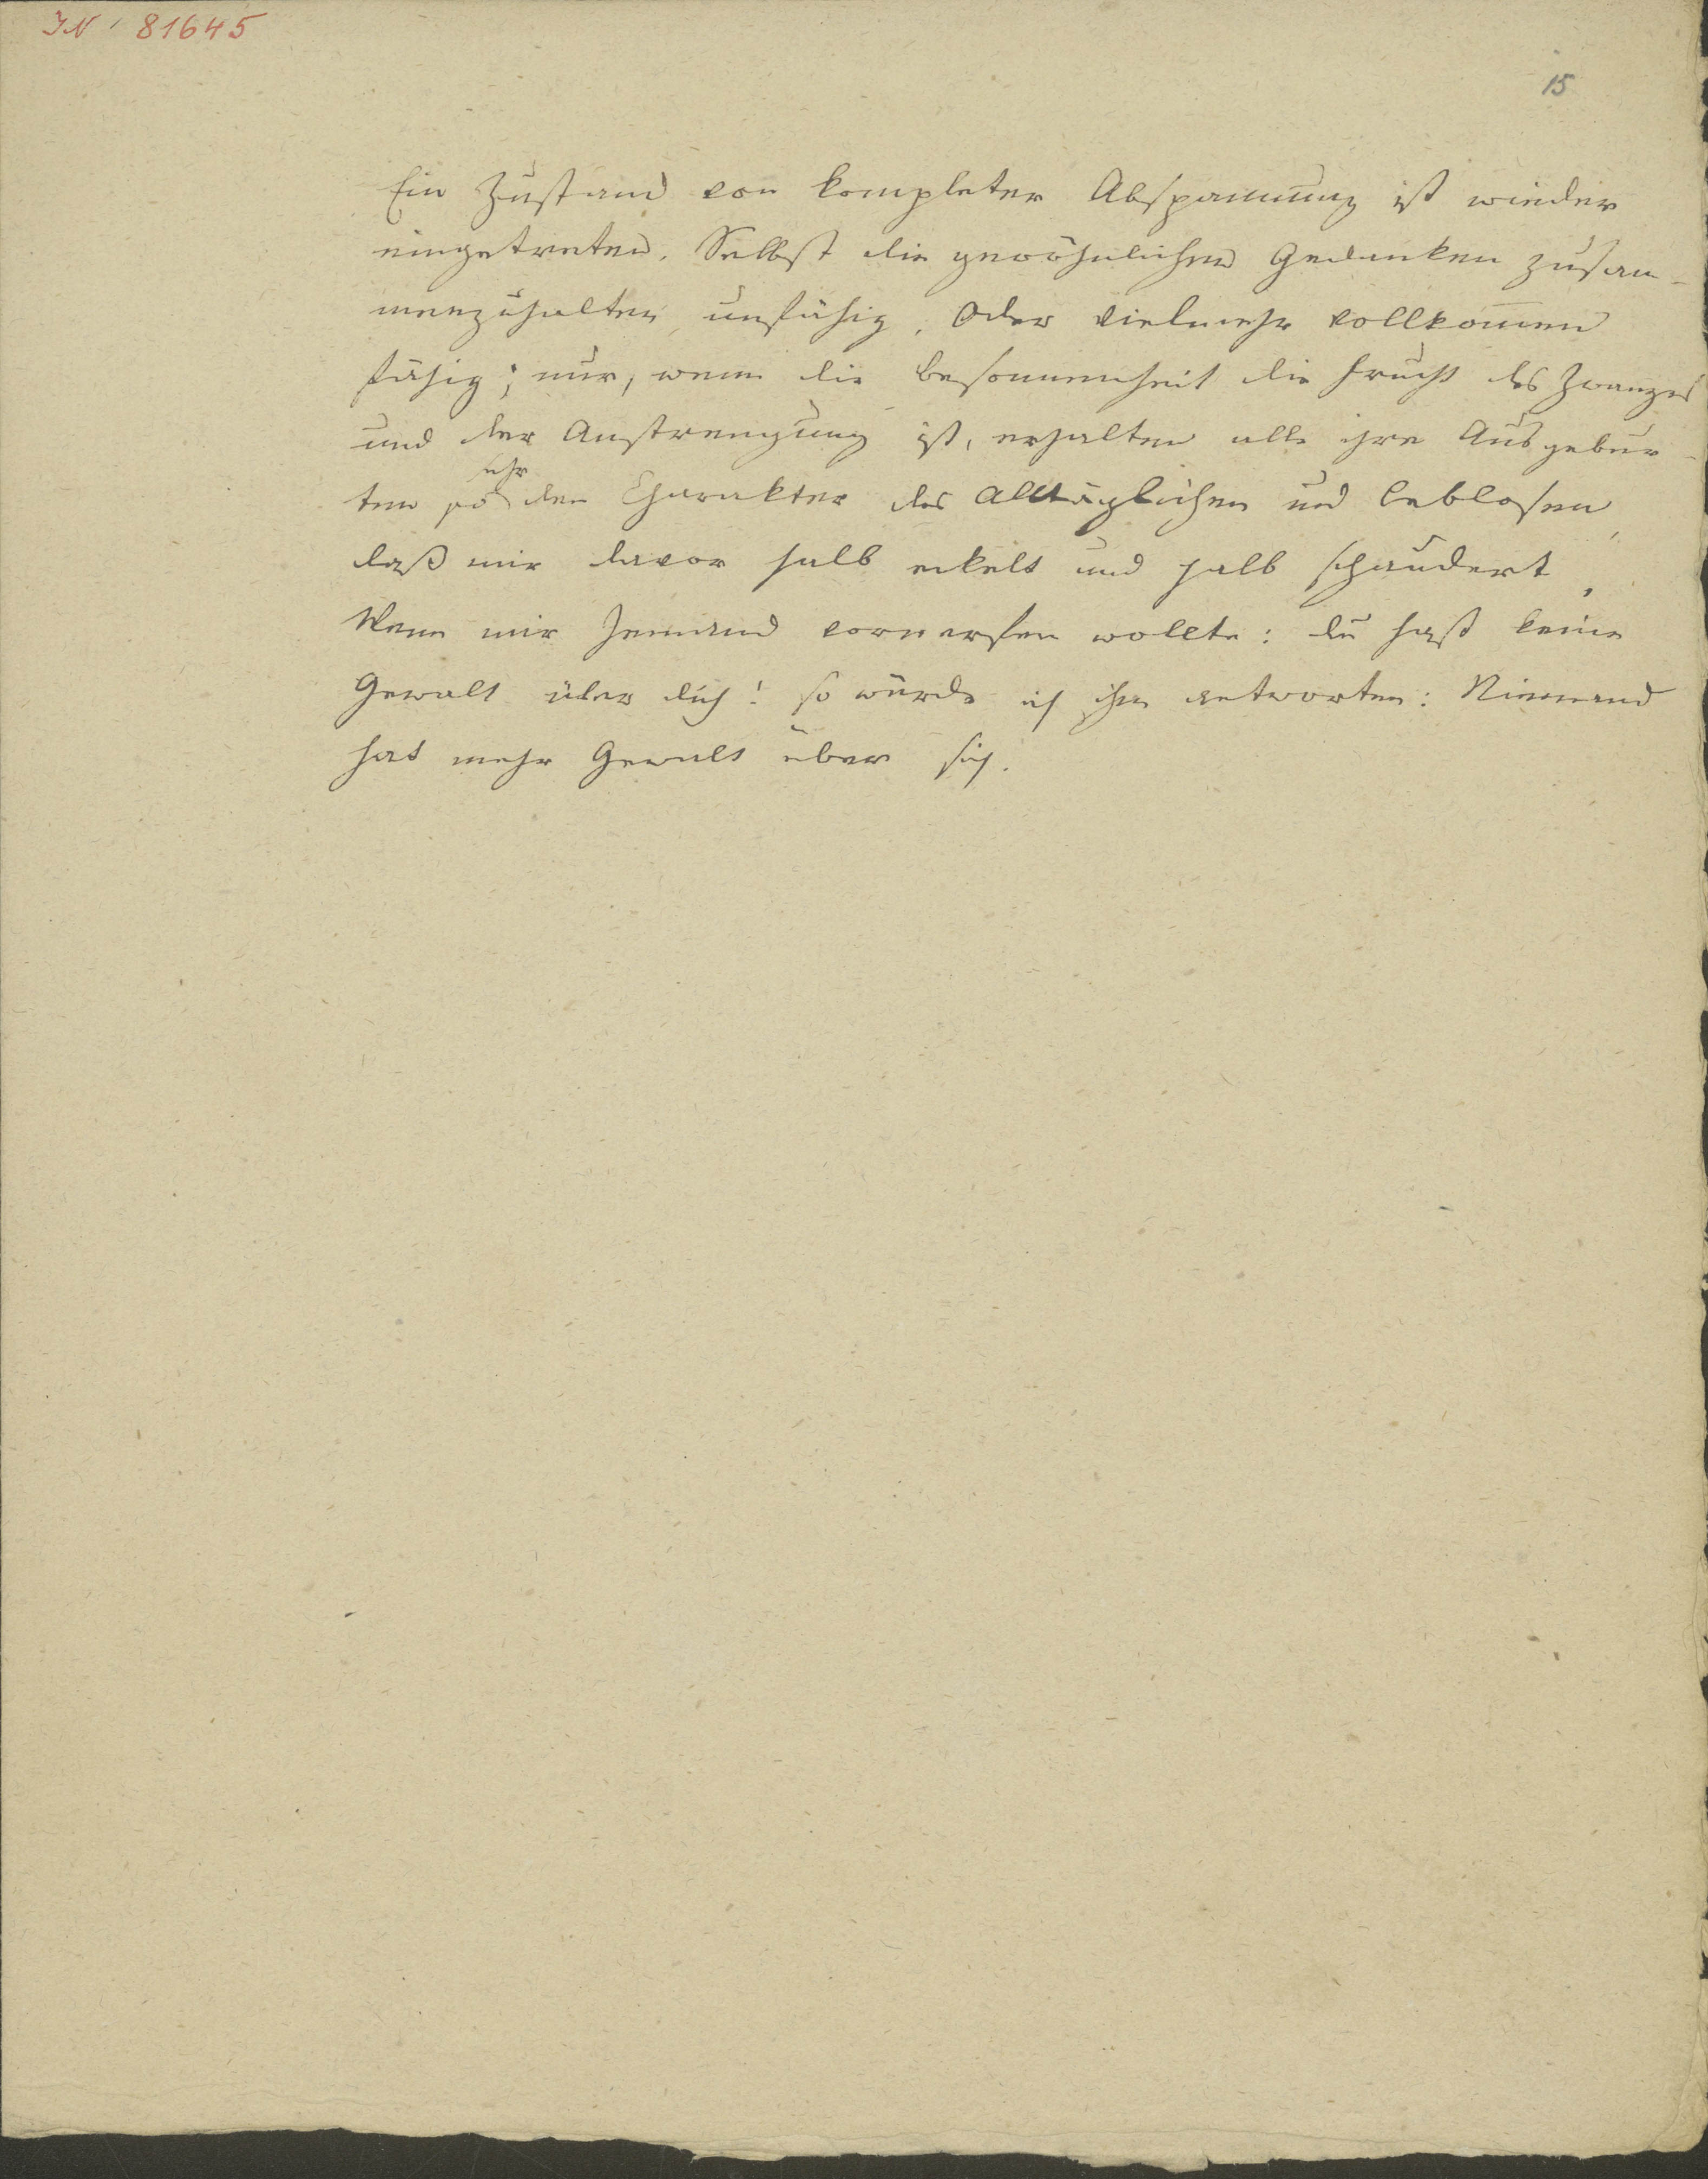 IN 81645
15
Ein Zustand von kompleter Abspannung ist wieder
eingetreten. Selbst die gewöhnlichen Gedanken zusam-
menzuhalten unfähig. Oder vielmehr vollkom̅en
fähig; nur, wenn die Besonnenheit die Frucht des Zwanges
und der Anstrengung ist, erhalten alle ihre Ausgebur-
sehr
ten so den Charakter des Alltäglichen und Leblosen,
daß mir davor halb eckelt und halb schaudert.
Wenn mir Jemand vorwerfen wollte: du hast keine
Gewalt über dich! so würde ich ihm antworten: Niemand
hat mehr Gewalt über sich.